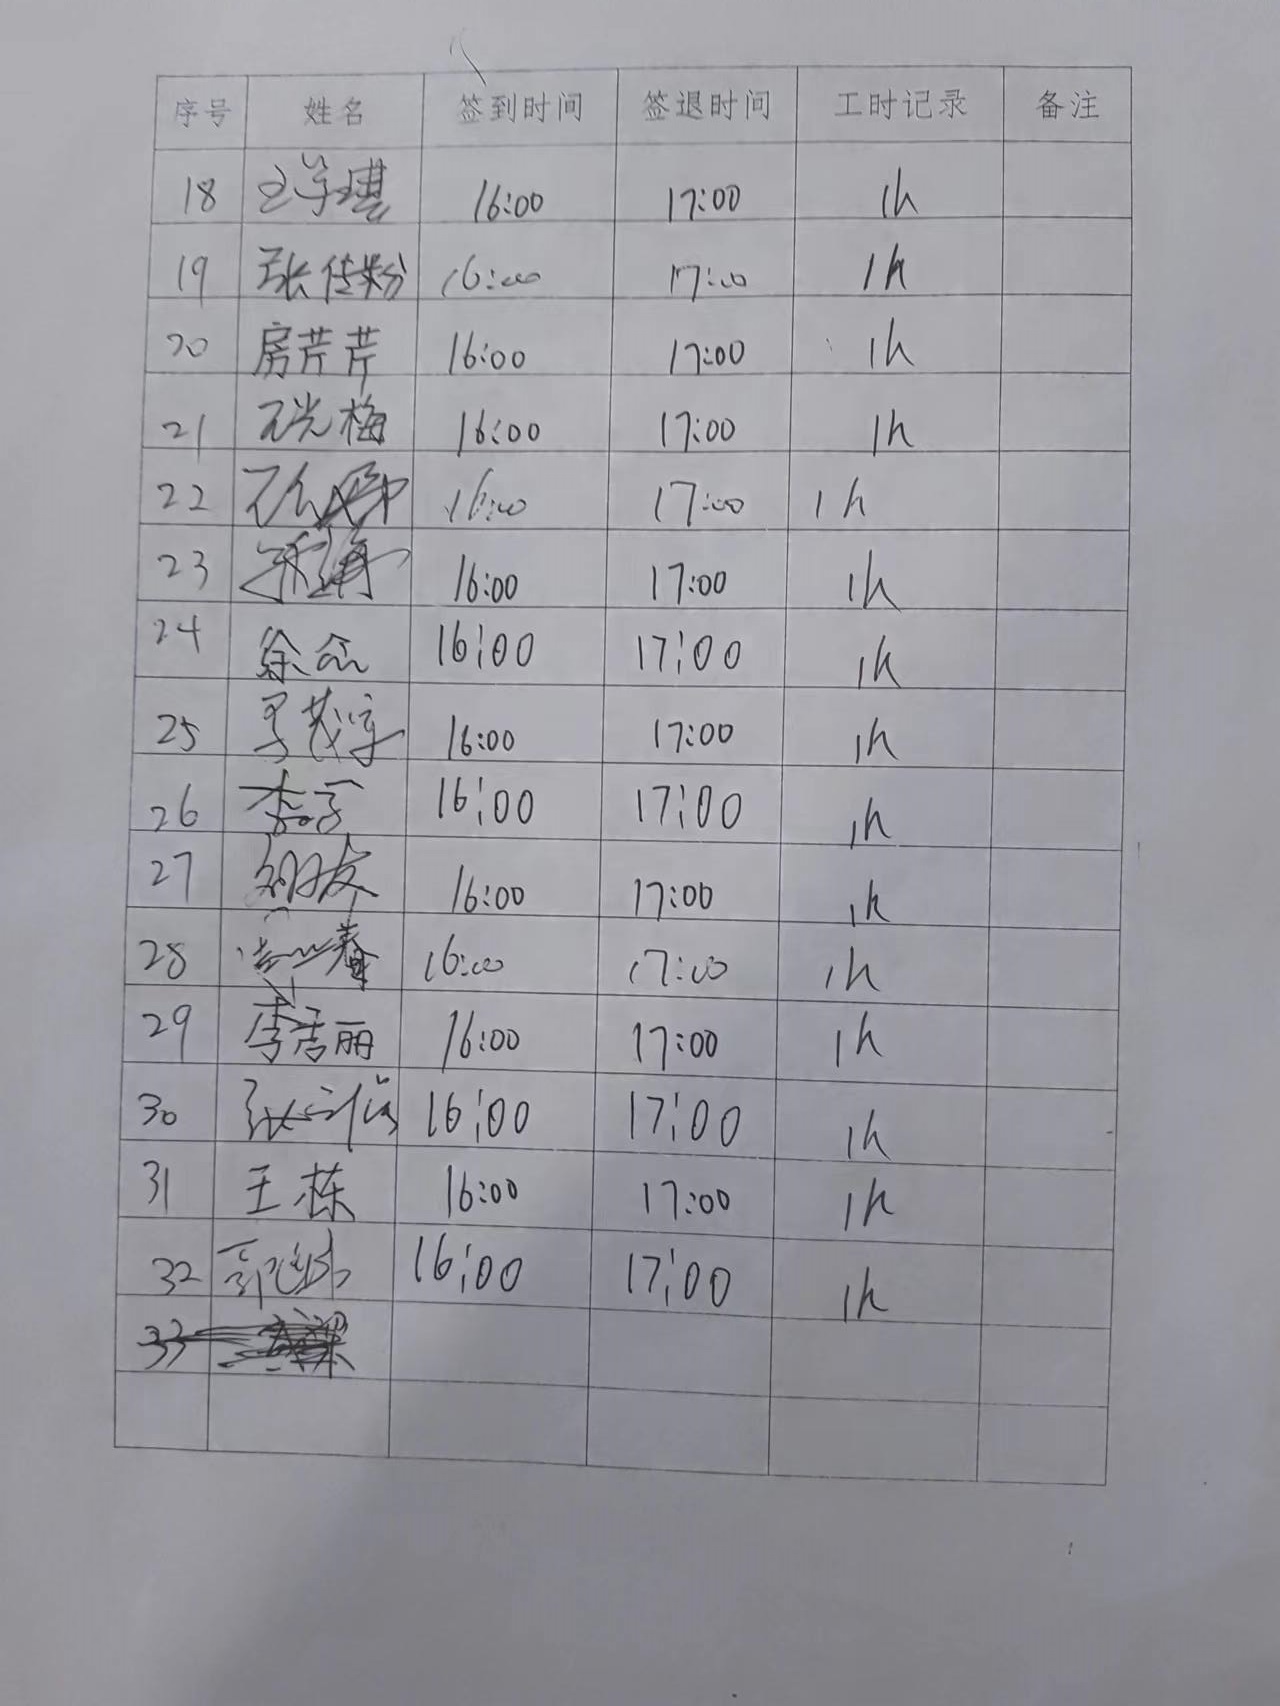 序号 姓名 签到时间 签退时间 工时记录 备注
18 16:00 17:00 1h
19 张传粉 16:00 17:00 1h
20 房芹芹 16:00 17:00 1h
21 石光梅 16:00 17:00 1h
22 16:00 17:00 1h
23 16:00 17:00 1h
24 徐 16:00 17:00 1h
25 16:00 17:00 1h
26 16:00 17:00 1h
27 16:00 17:00 1h
28 16:00 17:00 1h
29 李秀丽 16:00 17:00 1h
30 张 16:00 17:00 1h
31 王栋 16:00 17:00 1h
32 16:00 17:00 1h
33